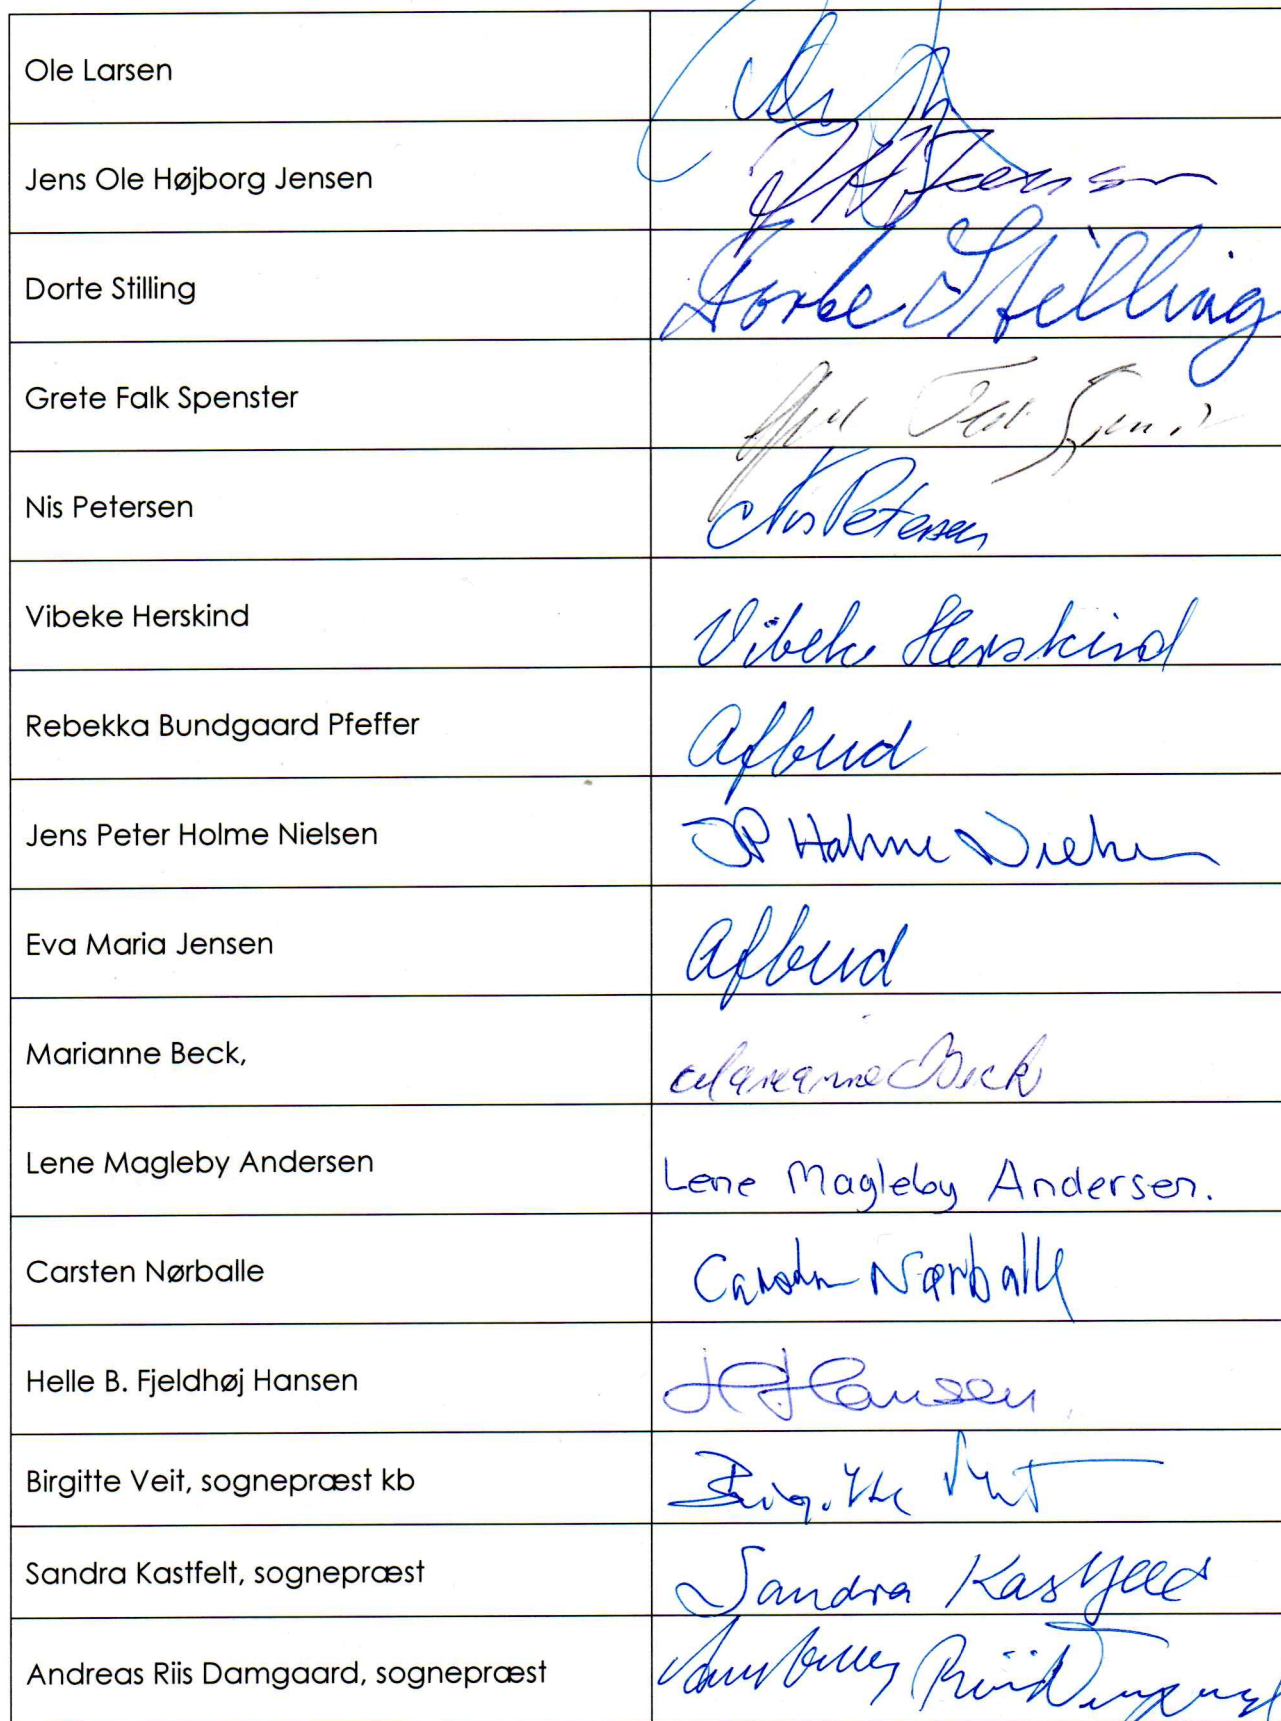 Ole Larsen
Jens Ole Højborg Jensen Jensen
Dorte Stilling Dorte Stilling
Grete Falk Spenster
Nis Petersen Nis Petersen
Vibeke Herskind Vibeke Herskind
Rebekka Bundgaard Pfeffer Afbud
Jens Peter Holme Nielsen JP Holme Nielsen
Eva Maria Jensen Afbud
Marianne Beck, Marianne Beck
Lene Magleby Andersen Lene Magleby Andersen.
Carsten Nørballe Carsten Nørballe
Helle B. Fjeldhøj Hansen HFHansen
Birgitte Veit, sognepræst kb Birgitte Veit
Sandra Kastfelt, sognepræst Sandra Kastfelt
Andreas Riis Damgaard, sognepræst Riis